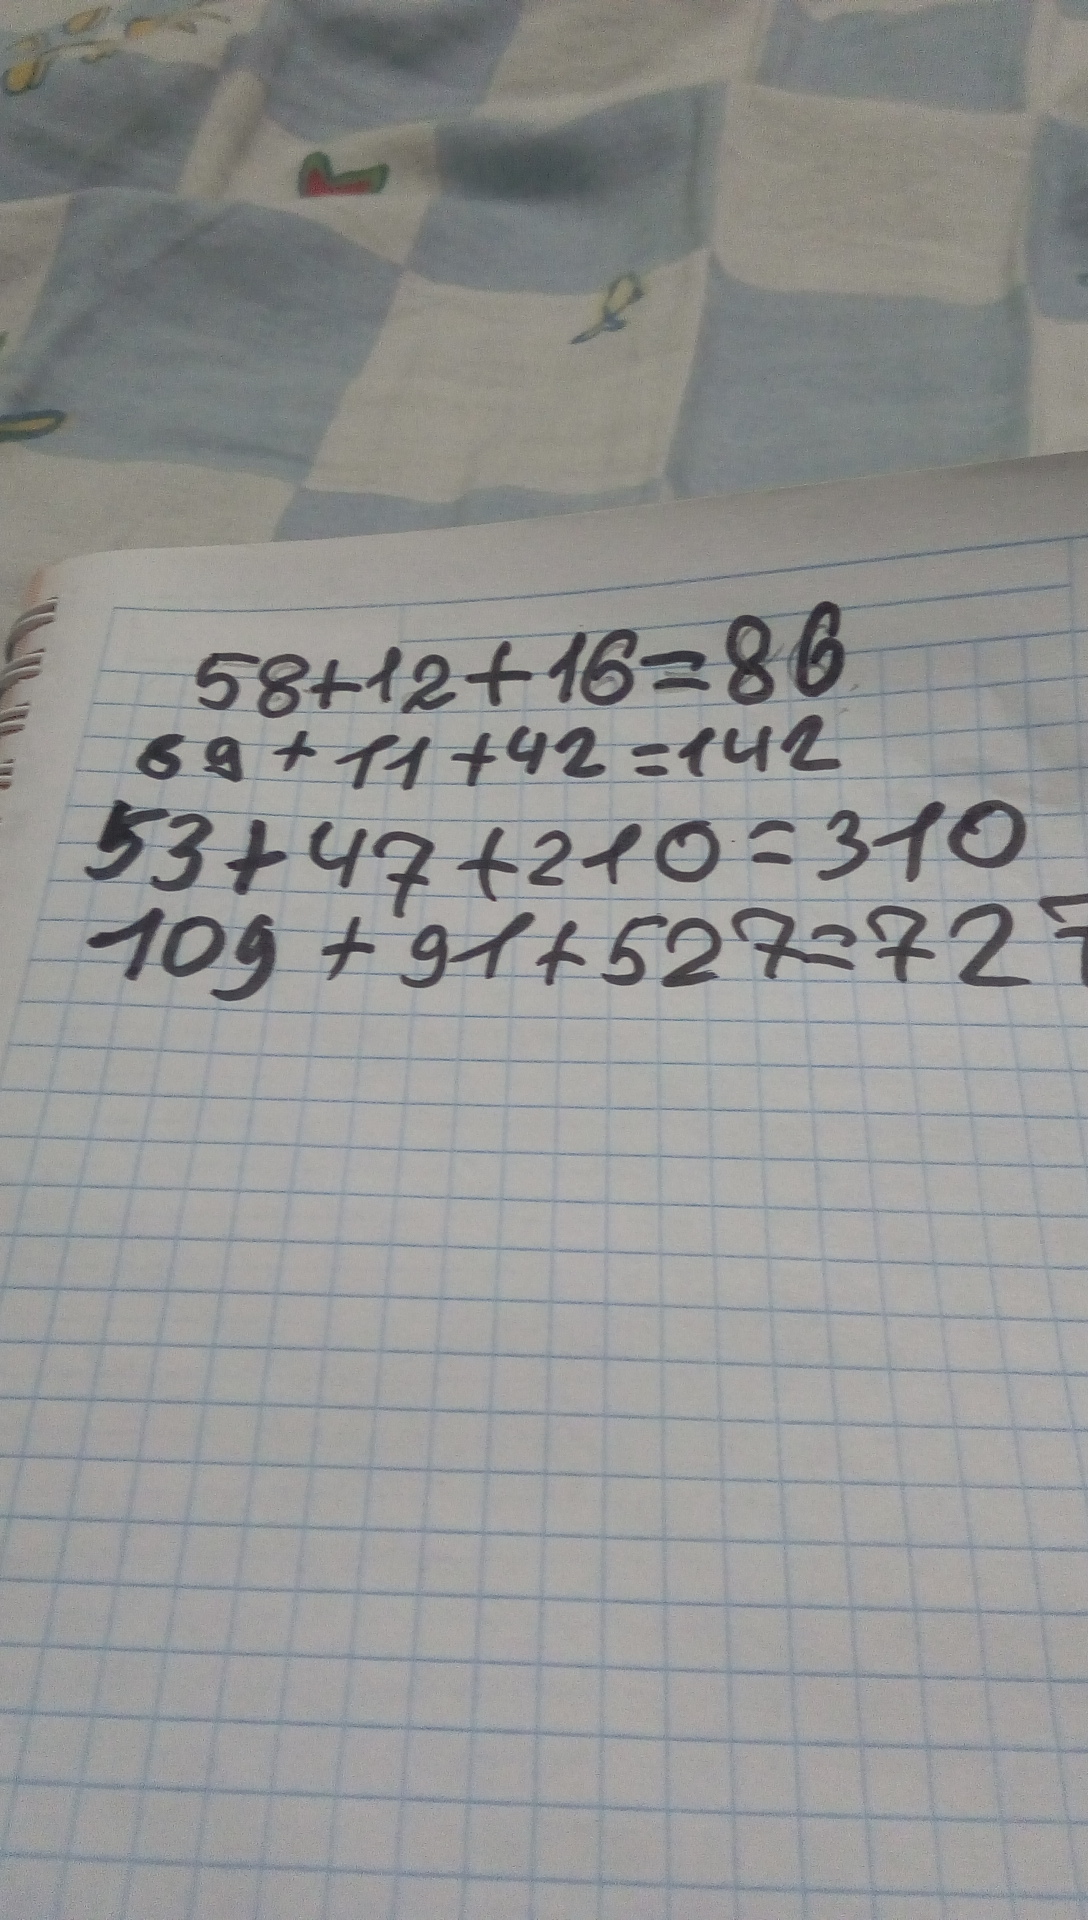 58+12+16=86
69+11+42=142
53+47+210=310
109+91+527=727